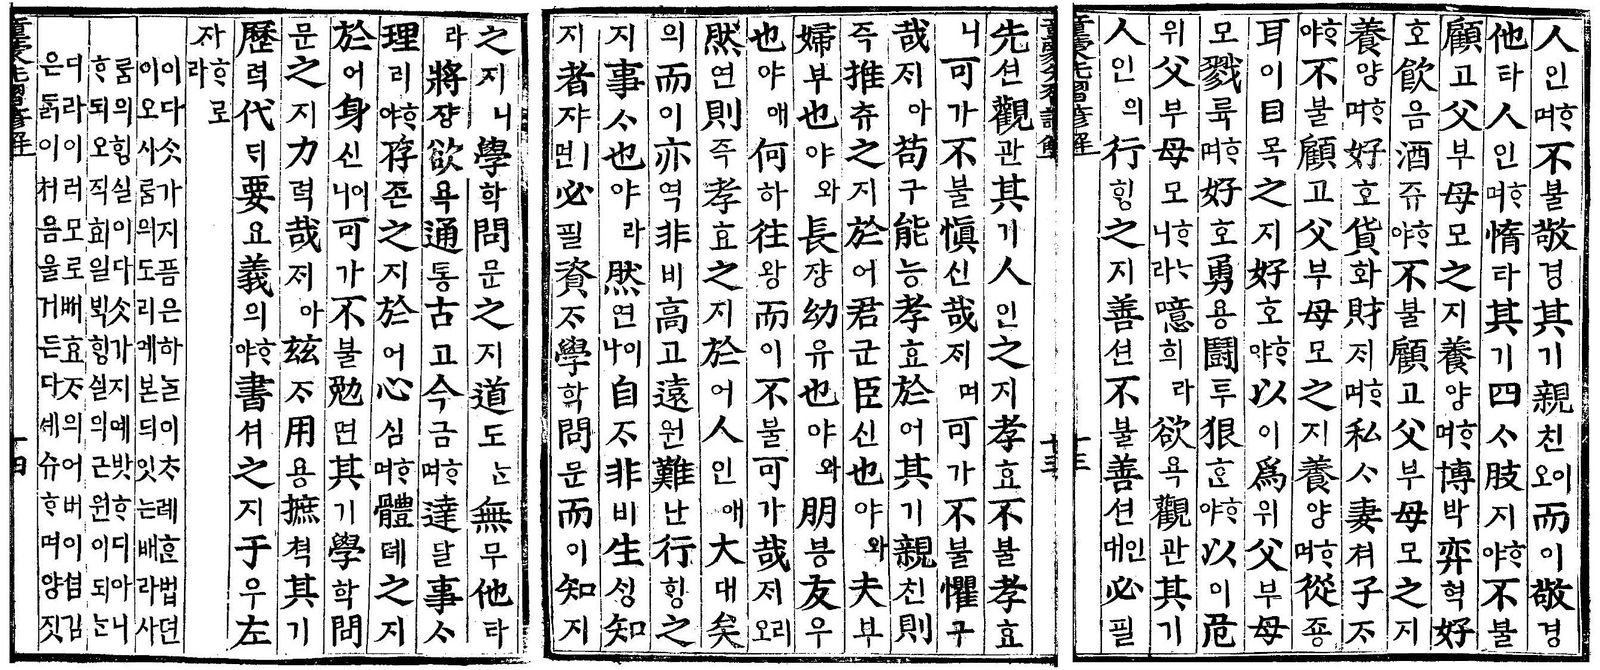 人인ᄒᆞ며不불敬경其기親친이오而이敬경
他타人인ᄒᆞ며惰타其기四ᄉᆞ肢지ᄒᆞ야不불
顧고父부母모之지養양ᄒᆞ며博박弈혁好
호飮음酒쥬ᄒᆞ야不불顧고父부母모之지
養양ᄒᆞ며好호貨화財ᄌᆡᄒᆞ며私ᄉᆞ妻쳐子ᄌᆞ
ᄒᆞ야不불顧고父부母모之지養양ᄒᆞ며從죵
耳이目목之지好호ᄒᆞ야以이爲위父부母
모戮륙ᄒᆞ며好호勇용鬪투狠흔ᄒᆞ야以이危
위父부母모ᄒᆞᄂᆞ니라噫희라欲욕觀관其기
人인의行ᄒᆡᆼ之지善션不불善션인대必필
童蒙先習諺解
十三
先션觀관其기人인之지孝효不불孝효
니可가不불愼신哉ᄌᆡ며可가不불懼구
哉ᄌᆡ아苟구能능孝효於어其기親친則
즉推츄之지於어君군臣신也야와夫부
婦부也야와長쟝幼유也야와朋븡友우
也야애何하往왕而이不불可가哉ᄌᆡ리오
然연則즉孝효之지於어人인애大대矣
의而이亦역非비高고遠원難난行ᄒᆡᆼ之
지事ᄉᆞ也야라然연이나自ᄌᆞ非비生ᄉᆡᆼ知
지者쟈ㅣ면必필資ᄌᆞ學학問문而이知지
之지니學학問문之지道도ᄂᆞᆫ無무他타
라將쟝欲욕通통古고今금ᄒᆞ며達달事ᄉᆞ
理리ᄒᆞ야存존之지於어心심ᄒᆞ며體톄之지
於어身신이니可가不불勉면其기學학問
문之지力력哉ᄌᆡ아玆ᄌᆞ用용摭쳑其기
歷력代ᄃᆡ要요義의ᄒᆞ야書셔之지于우左
자ᄒᆞ로라
이다ᄉᆞᆺ가지픔은하ᄂᆞᆯ이ᄎᆞ례ᄒᆞᆫ법뎐
이오사ᄅᆞᆷ의도리예본ᄃᆡ잇ᄂᆞᆫ배라사
ᄅᆞᆷ의ᄒᆡᆼ실이다ᄉᆞᆺ가지예밧ᄒᆞ디아니
ᄒᆞ되오직효일ᄇᆡᆨᄒᆡᆼ실의근원이되ᄂᆞᆫ
디라이러모로ᄡᅥ효ᄌᆞ의어버이셤김
은ᄃᆞᆰ이처음울거든다셰슈ᄒᆞ며양짓
童蒙先習諺解
十四